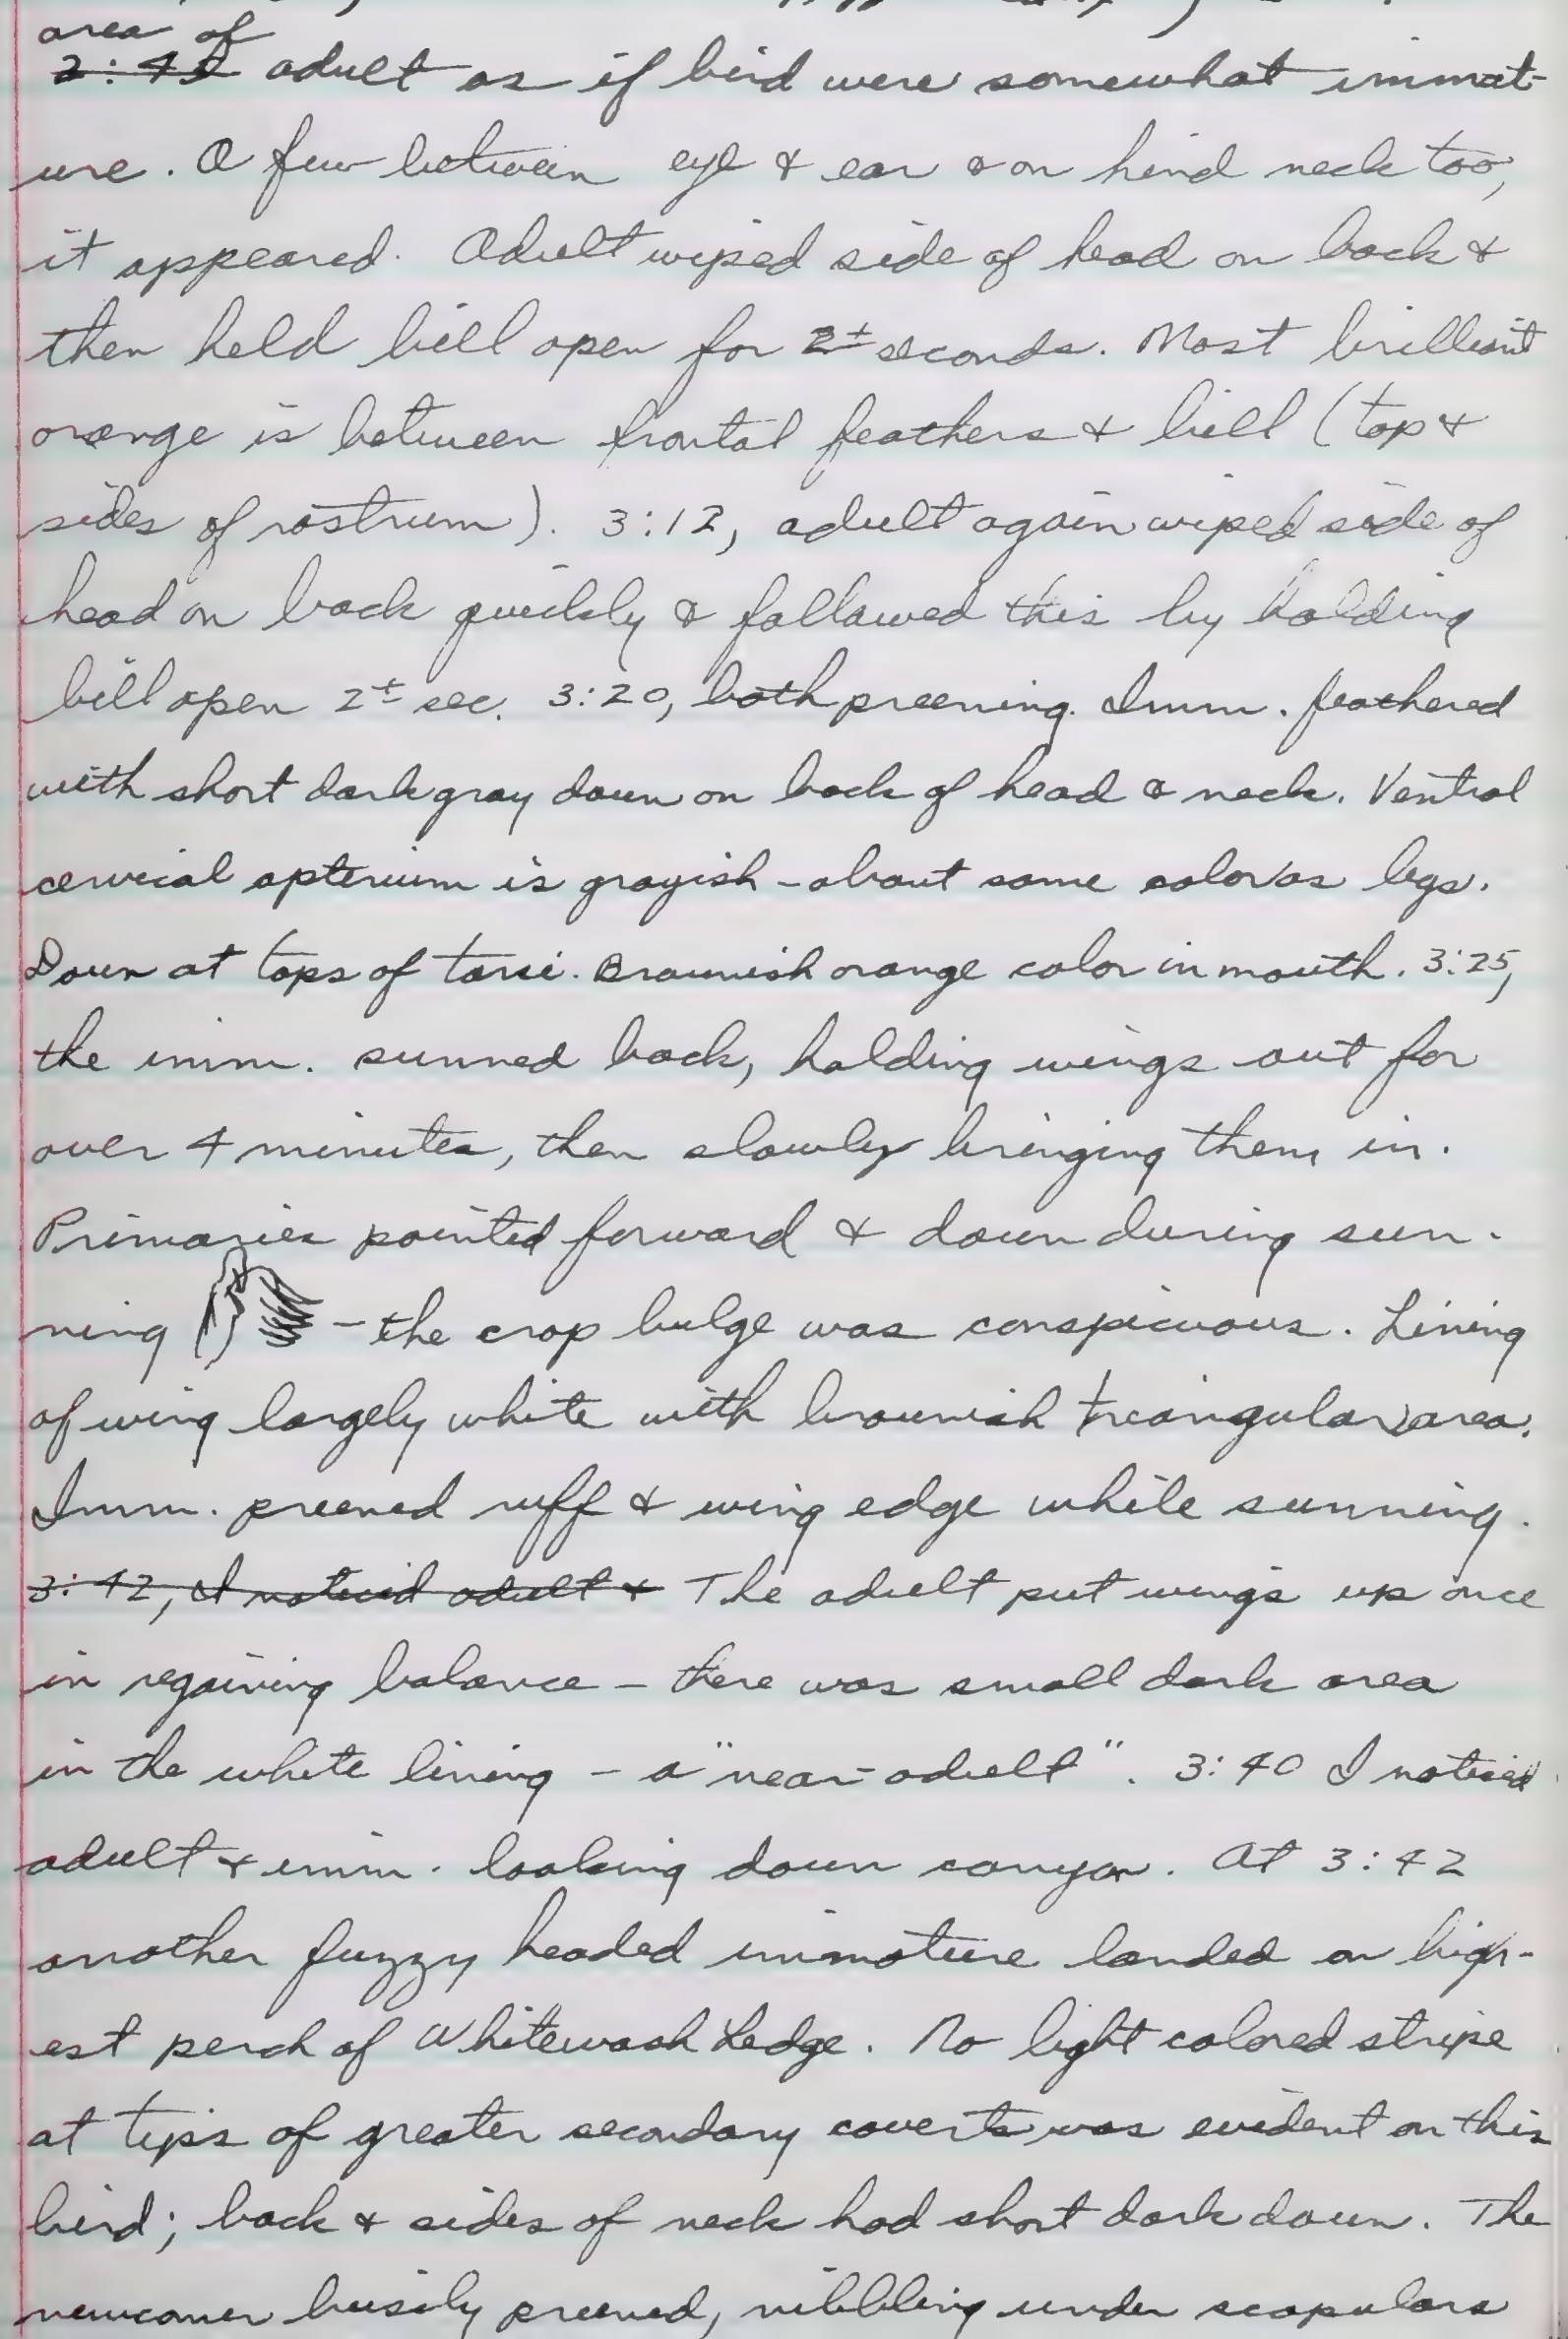 area of
2:42 adult as if bird were somewhat immat-
ure. A few between eye & ear & on hind neck too,
it appeared. Adult wiped side of head on back &
then held bill open for 2± seconds. Most brilliant
orange is between frontal feathers & bill (top &
sides of rostrum). 3:12, adult again wiped side of
head on back quickly & followed this by holding
bill open 2± sec. 3:20, both preening. Imm. feathered
with short dark gray down on back of head & neck. Ventral
cervical apterium is grayish - about same color as legs.
Down at tops of tarsi. Brownish orange color in mouth. 3:25,
the imm. sunned back, holding wings out for
over 4 minutes, then slowly bringing them in.
Primaries pointed forward & down during sun-
ning - the crop bulge was conspicuous. Lining
of wing largely white with brownish triangular area.
Imm. preened ruff & wing edge while sunning.
3:42, I noticed adult & The adult put wings up once
in regaining balance - there was small dark area
in the white lining - a "near-adult". 3:40 I noticed
adult & imm. looking down canyon. At 3:42
another fuzzy headed immature landed on high-
est perch of Whitewash Ledge. No light colored stripe
at tips of greater secondary coverts was evident on this
bird; back & sides of neck had short dark down. The
newcomer busily preened, nibbling under scapulars